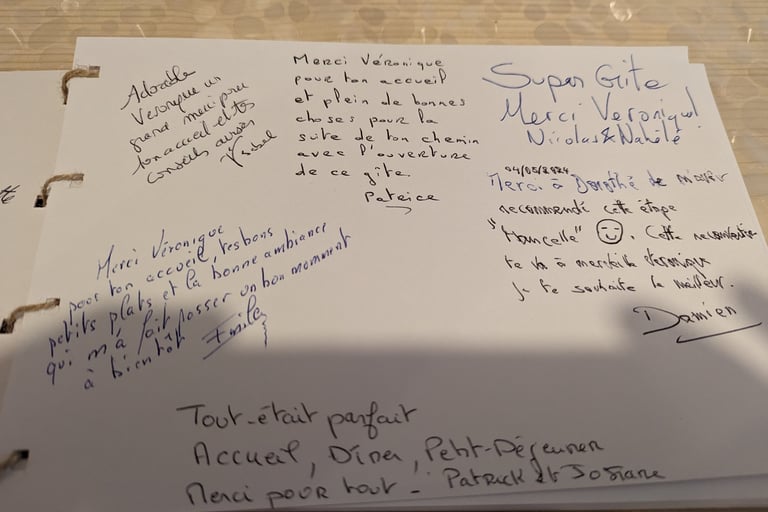 Adorable
Véronique un
grand merci pour
ton accueil et tes
conseils
Merci Véronique
pour ton accueil
et plein de bonnes
choses pour la
suite de ton chemin
avec l'ouverture
de ce gîte.
Patrice
Super Gite
Merci Veronique!
Nicolas & Nahélé
04/05/2024
Merci à Dorothé de m'avoir
recommandé cette étape
"Mancelle" . Cette
te va à merveille
je te souhaite le meilleur.
Damien
Merci Véronique
pour ton accueil, tes bons
petits plats et la bonne ambiance
qui m'a fait passer un bon moment
à bientôt Emile
Tout-était parfait
Accueil, Diner, Petit-Déjeuner
Merci pour tout - Patrick et Josiane